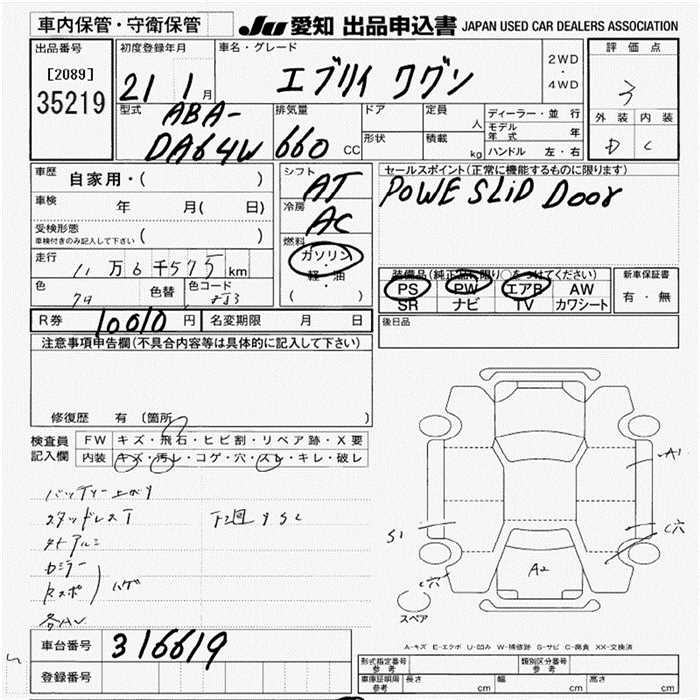 車内保管・守衛保管
JU 愛知 出品申込書 JAPAN USED CAR DEALERS ASSOCIATION
出品番号
[2089]
35219
初度登録年月
21 1月
車名・グレード
エブリイ ワゴン
2WD
・
4WD
評価点
3
外装 内装
D C
型式
ABA-
DA64W
排気量
660 CC
ドア
形状
定員
人
積載
kg
ディーラー・並行
モデル年式 年
ハンドル 左・右
車歴
自家用・( )
車検
年 月( 日)
受検形態
車検付きのみ記入して下さい ( )
走行
11万6千575km
色
色替
色コード
ZJ3
シフト
AT
冷房
AC
燃料
ガソリン
・
軽・油
( )
セールスポイント(正常に機能するものに限ります)
PoWE SLiD Door
装備品(純正品に限り○をつけてください)
PS PW エアB AW
SR ナビ TV カワシート
新車保証書
有・無
R券 10010円
名変期限 月 日
後日品
注意事項申告欄(不具合内容等は具体的に記入して下さい)
修復歴 有 (箇所
検査員
記入欄
FW キズ・飛石・ヒビ割・リペア跡・X要
内装 キズ・汚レ・コゲ・穴・スレ・キレ・破レ
バッテリー上がり
スタッドレスT
下廻りSC
社外アルミ
ハゲ
A1
S1
C穴
C穴
A2
スペア
A-キズ E-エクボ U-凹み W-補修跡 S-サビ C-腐食 XX-交換済
車台番号
316619
登録番号
型式指定番号
参考
類別区分番号
参考
車庫証明用
参考
長さ cm 幅 cm 高さ cm